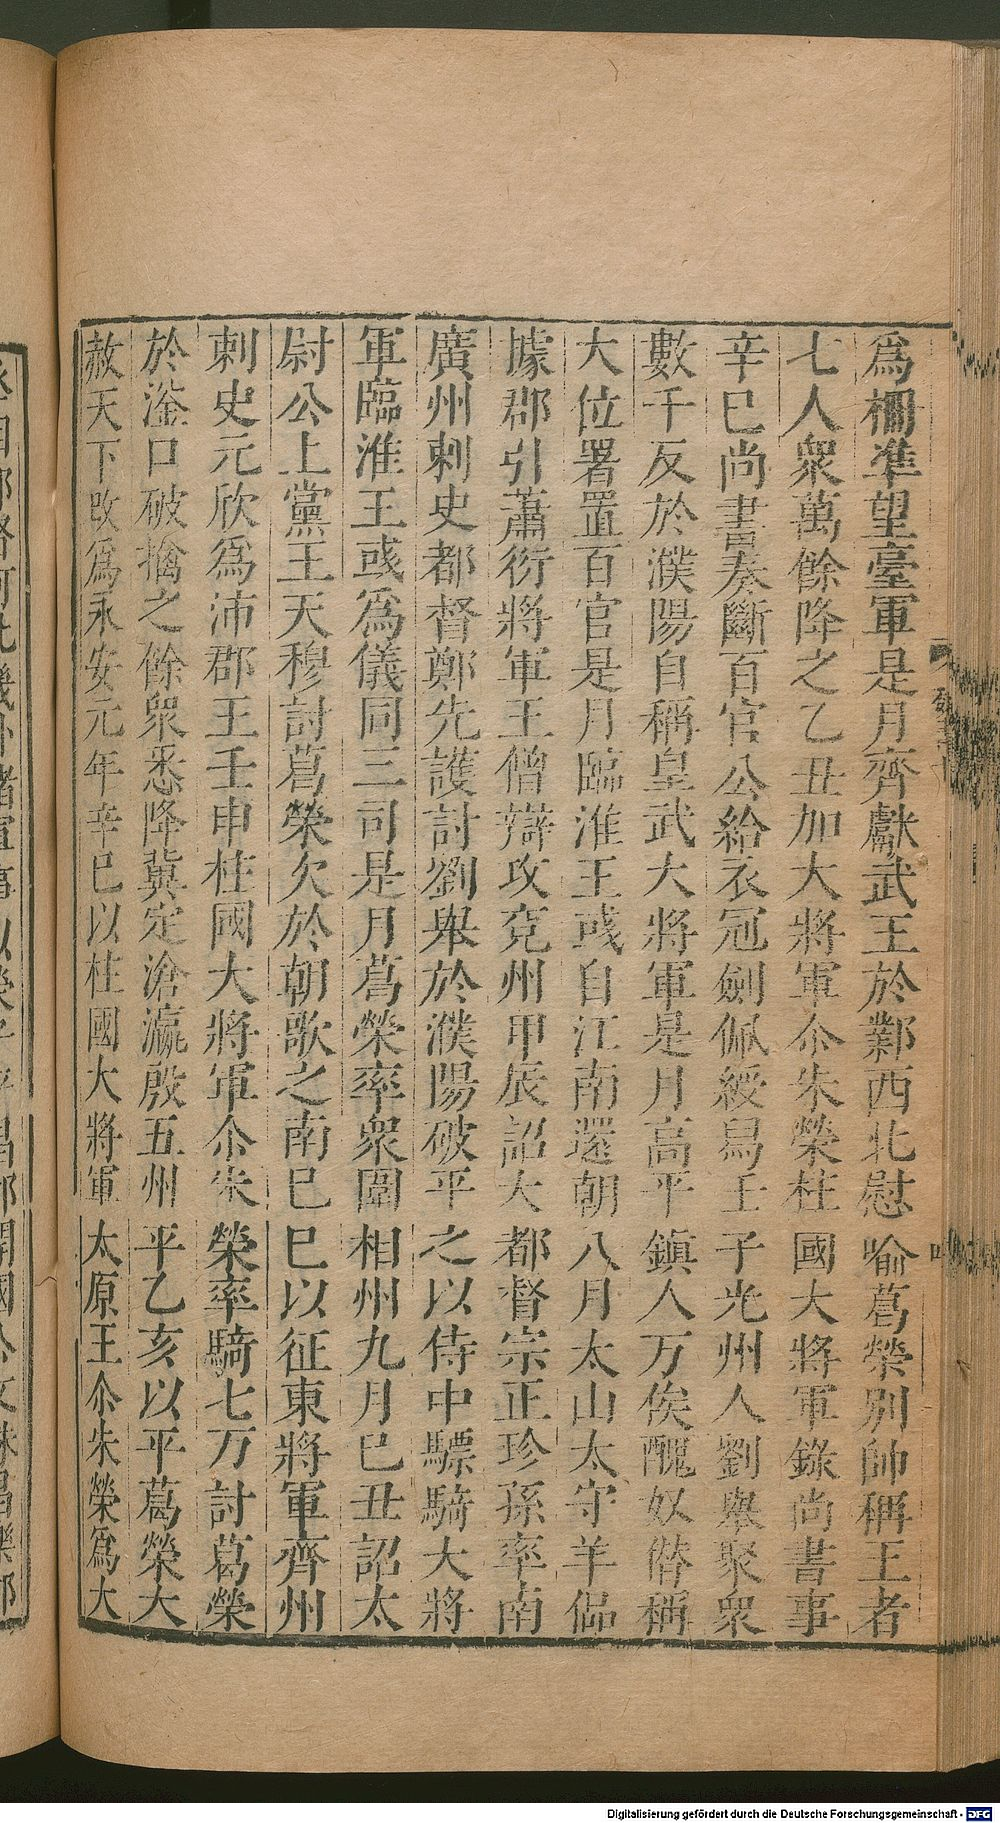 爲禰準望臺軍是月齊獻武王於鄴西北慰喻葛榮別帥稱王者
七人衆萬餘降之乙丑加大將軍尒朱榮柱國大將軍錄尚書事
辛巳尚書奏斷百官公給衣冠劍佩綬舄壬子光州人劉舉聚衆
數千反於濮陽自稱皇武大將軍是月高平鎮人万俟醜奴僭稱
大位署置百官是月臨淮王彧自江南還朝八月太山太守羊侃
據郡引蕭衍將軍王僧辯攻兗州甲辰詔大都督宗正珍孫率南
廣州刺史都督鄭先護討劉舉於濮陽破平之以侍中驃騎大將
軍臨淮王彧爲儀同三司是月葛榮率衆圍相州九月巳丑詔太
尉公上黨王天穆討葛榮欠於朝歌之南巳巳以征東將軍齊州
刺史元欣爲沛郡王壬申柱國大將軍尒朱榮率騎七万討葛榮
於滏口破擒之餘衆悉降冀定滄瀛殷五州平乙亥以平葛榮大
赦天下改爲永安元年辛巳以柱國大將軍太原王尒朱榮爲大
Digitalisierung gefördert durch die Deutsche Forschungsgemeinschaft - DFG